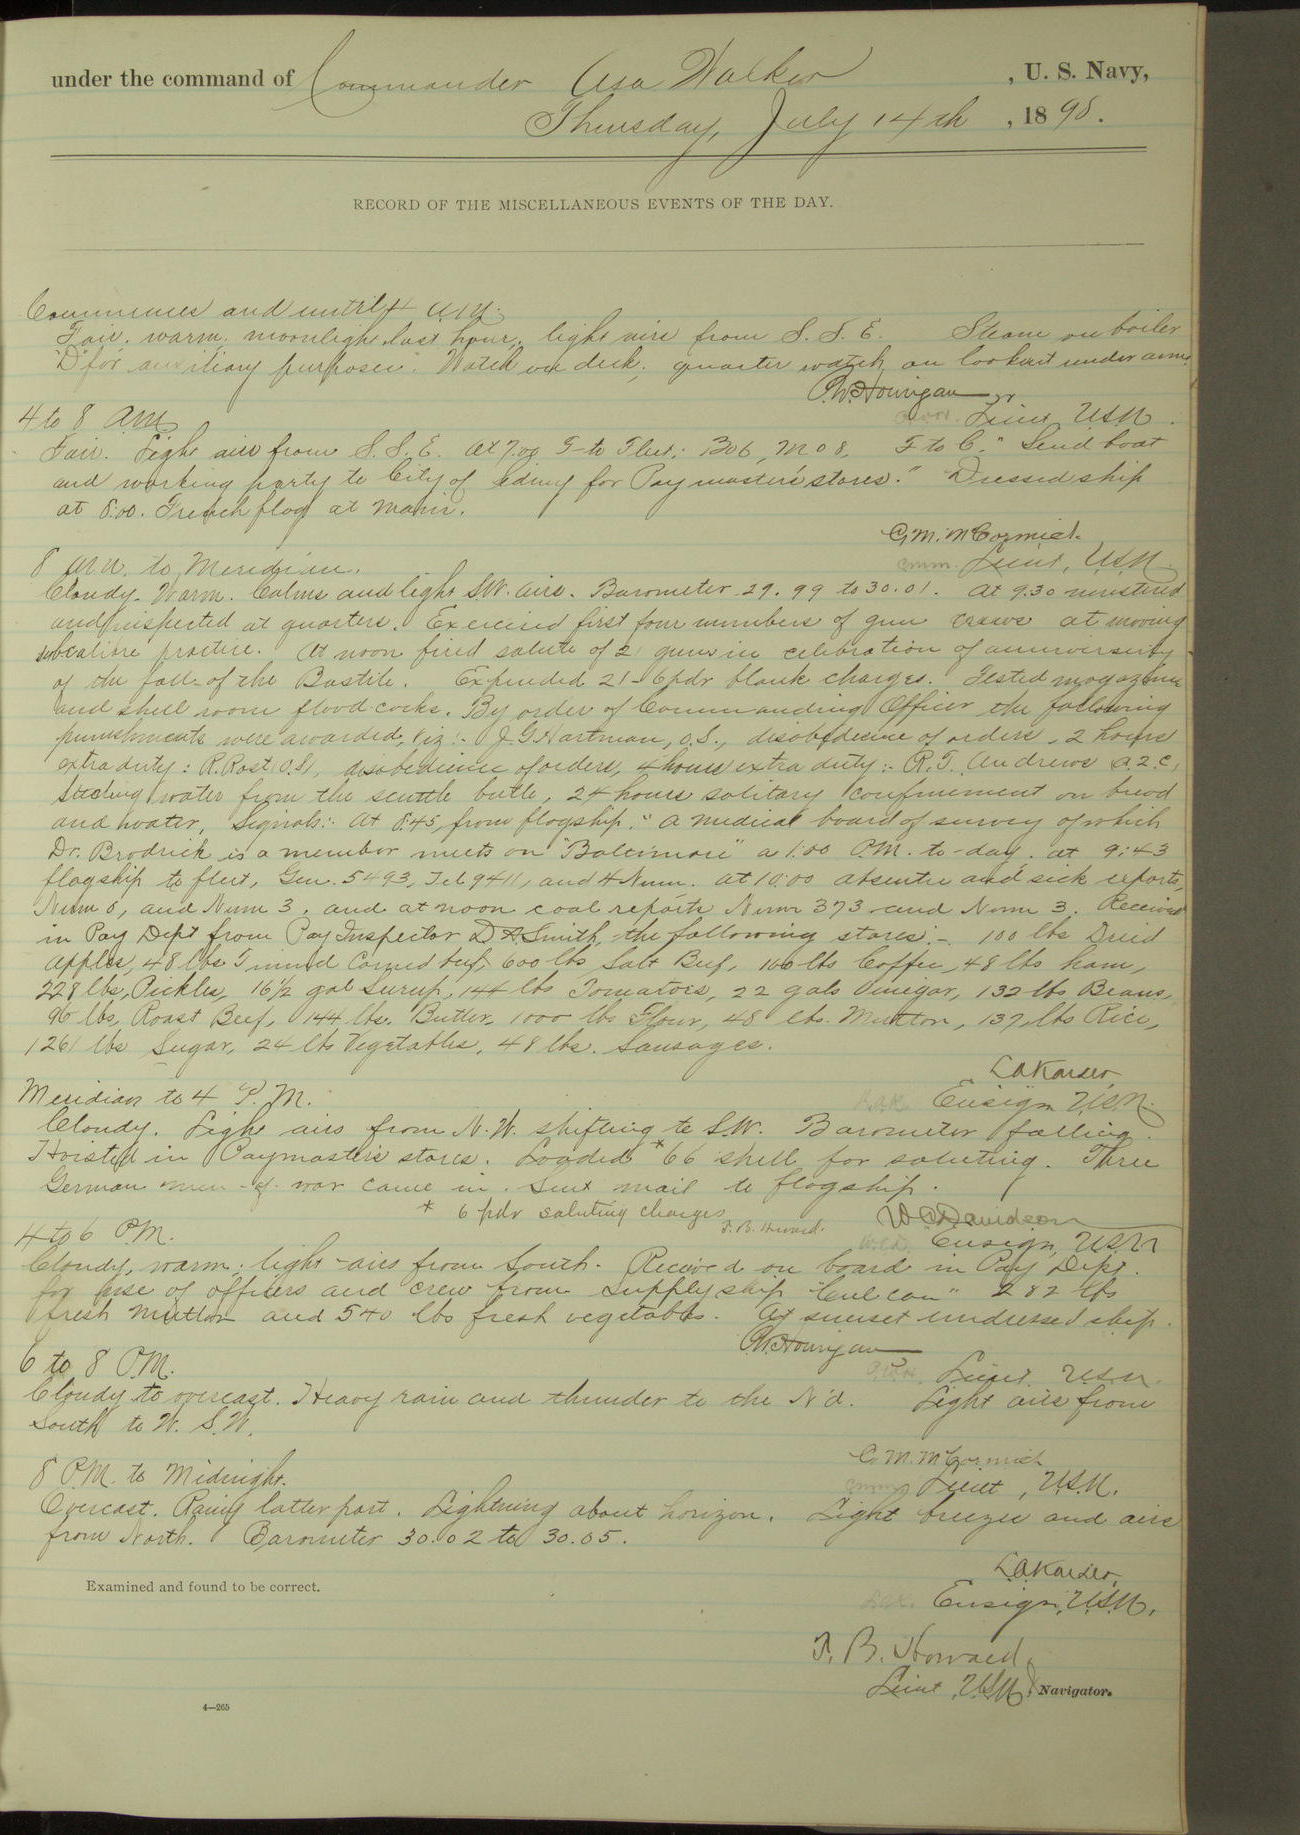 under the command of Commander Asa Walker , U. S. Navy,
Thursday, July 14th , 1898.
RECORD OF THE MISCELLANEOUS EVENTS OF THE DAY.
Commences and until 4 A.M.
Fair, warm, moonlight last hour, light airs from S. S. E. Steam on boiler
"D" for auxiliary purposes. Watch on deck, quarter watch on lookout under arms
P.W. Hourigan
Lieut USN.
4 to 8 AM
Fair. Light airs from S. S. E. At 7.00 F- to Fleet: 306, M08, F to C. "Send boat
and working party to City of for Paymasters stores." Dressed ship
at 8:00. French flag at main.
C.M. McCormick
cmm. Lieut, U.S.N.
8 AM. to Meridian.
Cloudy. Warm. Calms and light S.W. airs. Barometer 29.99 to 30.01. At 9.30 mustered
and inspected at quarters. Exercised first four numbers of gun crews at moving
subcalibre practice. At noon fired salute of 21 guns in celebration of anniversary
of the fall of the Bastile. Expended 21-6pdr blank charges. Tested magazine
and shell room flood cocks. By order of Commanding Officer the following
punishments were awarded, viz:- J.G. Hartman, O.S., disobedience of orders, 2 hours
extra duty: R. Rost O.S., disobedience of orders, 4 hours extra duty:- R.T. Andrews a.2.c,
stealing water from the scuttle butte, 24 hours solitary confinement on bread
and water. Signals:- At 8:45, from flagship. "A medical board of survey of which
Dr. Brodrick is a member meets on "Baltimore" a 1:00 P.M. to-day. at 9:43
flagship to fleet, Gen. 5493, Tel 9411, and 4 Num. At 10:00 absentee and sick reports,
Num 8, and Num 3, and at noon coal reports Num 373 and Num 3. Received
in Pay Dept from Pay Inspector D A Smith, the following stores:- 100 lbs Dried
apples, 48 lbs Tinned Corned beef, 600 lbs Salt Beef, 100 lbs Coffee, 48 lbs ham,
228 lbs, Pickles, 16½ gal Syrup, 144 lbs Tomatoes, 22 gals Vinegar, 132 lbs Beans,
96 lbs, Roast Beef, 144 lbs. Butter, 1000 lbs Flour, 48 lbs. Mutton, 137 lbs Rice,
1261 lbs Sugar, 24 lbs Vegetables, 48 lbs. Sausages.
L A Kaiser,
Ensign U.S.N.
Meridian to 4 P.M.
Cloudy. Light airs from N.W. shifting to S.W. Barometer falling.
Hoisted in Paymasters stores. Loaded *66 shell for saluting. Three
German men-of-war came in. Sent mail to flagship.
* 6 pdr saluting charges T. B. Howard.
W C Davidson
W.C.D. Ensign, U.S.N
4 to 6 P.M.
Cloudy, warm; light airs from South. Received on board in Pay Dept.
for use of officers and crew from supply ship "Culcoa" 282 lbs
fresh mutton and 540 lbs fresh vegetables. At sunset undressed ship.
P.W. Hourigan
Lieut. USN.
6 to 8 P.M.
Cloudy to overcast. Heavy rain and thunder to the N'd. Light airs from
South to W. S.W.
C. M. McCormick
cmm Lieut, U.S.N.
8 P.M. to Midnight.
Overcast. Rainy latter part. Lightning about horizon. Light breezes and airs
from North. Barometer 30.02 to 30.05.
L.A. Kaiser,
LAK. Ensign, U.S.N.
Examined and found to be correct.
T. B. Howard,
Lieut, U.S.N, Navigator.
4—265